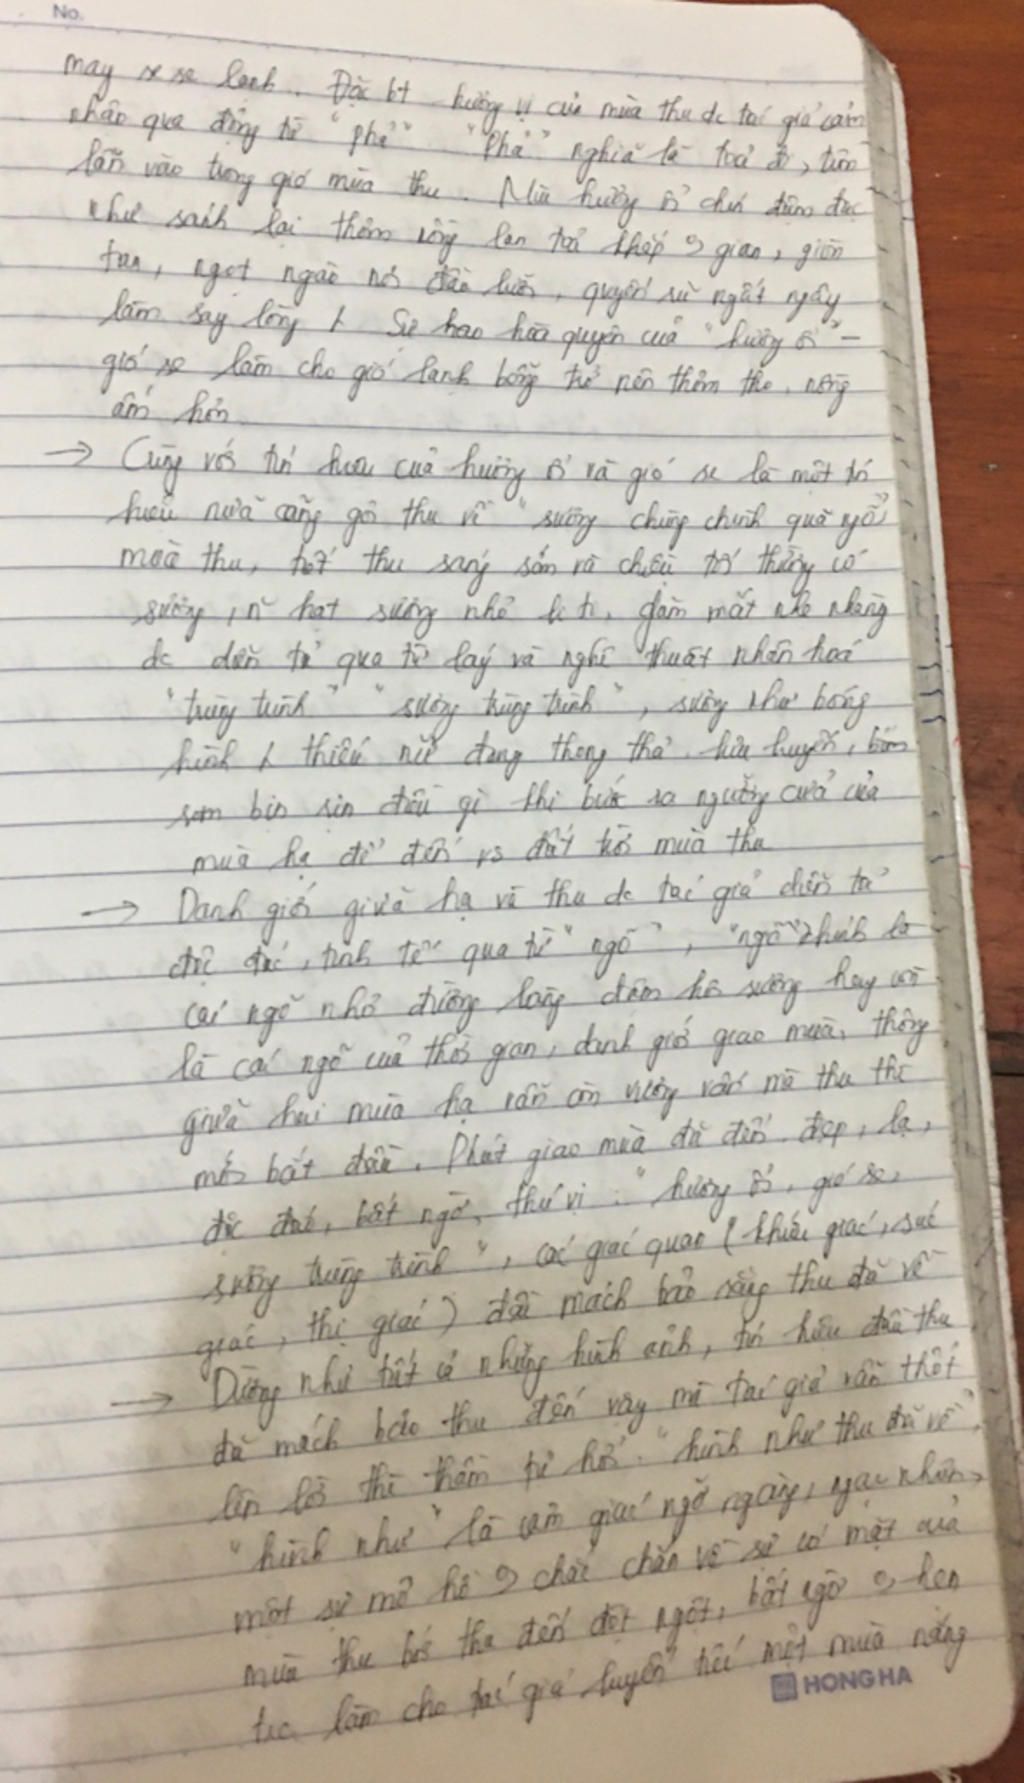 No.
may se se lạnh. Đặc bt hương vị của mùa thu dc tác giả cảm
nhận qua động từ "phả" "Phả" nghĩa là toả đi, tìm
lẫn vào trong gió mùa thu. Mùi hương ổi chín đậm đặc
như sánh lại thơm nồng lan toả khắp gian, giòn
tan, ngọt ngào nơi đầu lưỡi, quyến rũ ngất ngây
làm say lòng Sự hoà quyện của "hương ổi" -
gió se làm cho gió lạnh bỗng trở nên thơm tho, nồng
ấm hơn
→ Cùng với tín hiệu của hương ổi và gió se là một tín
hiệu nữa cũng gọi thu về "sương chùng chình quả ngõ"
mùa thu, tiết thu sáng sớm và chiều tối thường có
sương, n~ hạt sương nhỏ li ti, giăng mắt nhẹ nhàng
dc diễn tả qua từ láy và nghệ thuật nhân hoá
"trùng trình" "sương trùng trình", sương như bóng
hình 1 thiếu nữ đang thong thả. hiền huyền, bịn
sơm bịn sịn điều gì khi bước ra ngưỡng cửa của
mùa hạ để đến vs đất trời mùa thu
→ Danh giới giữa hạ và thu dc tác giả diễn tả
độc đáo, tinh tế qua từ "ngõ", "ngõ" chính là
cái ngõ nhỏ đường làng đẫm hơi sương hay còn
là cái ngõ của thời gian, danh giới giao mùa, thông
giữa hai mùa hạ vẫn còn vương vấn mà thu thì
mới bắt đầu. Phút giao mùa đã đến. đẹp, lạ,
độc đáo, bất ngờ, thú vị: "hương ổi, gió se,
sương trùng trình", các giác quan (khứu giác, xúc
giác, thị giác) đã mách bảo rằng thu đã về
→ Dường như tất cả những hình ảnh, tín hiệu đầu thu
đã mách bảo thu đến vậy mà tác giả vẫn thốt
lên lời thì thầm tự hỏi: "hình như thu đã về",
"hình như" là cảm giác ngỡ ngàng, ngạc nhiên,
một sự mơ hồ chắc chắn về sự có mặt của
mùa thu bởi thu đến đột ngột, bất ngờ hẹn
trc làm cho tác giả luyến tiếc một mùa nắng
HONG HA